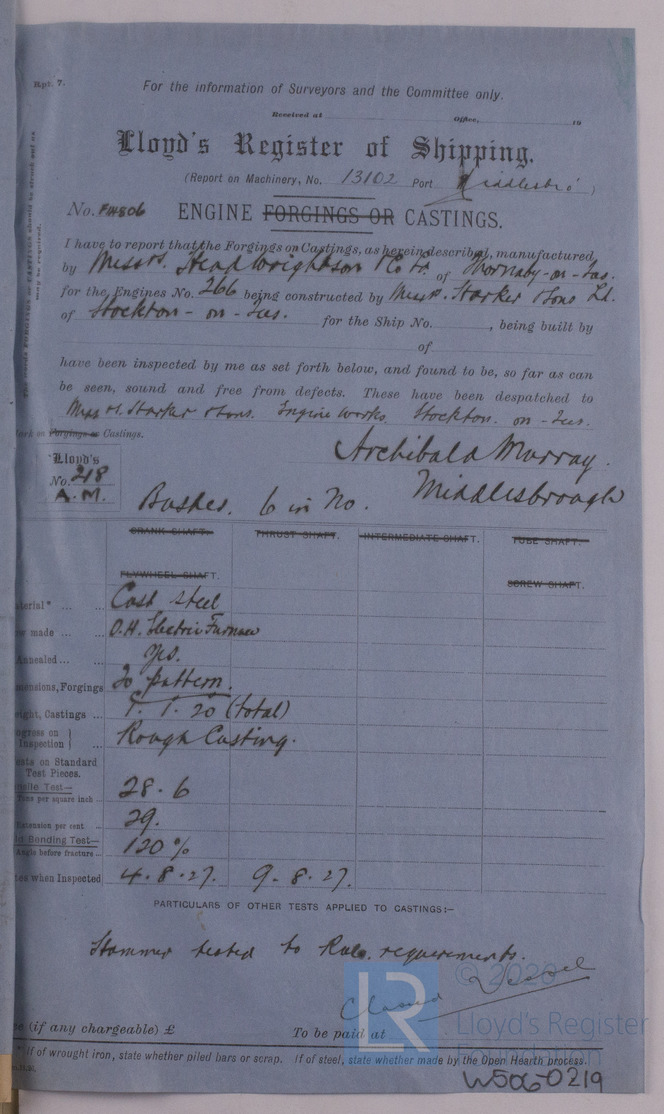 Rpt. 7.
For the information of Surveyors and the Committee only.
Received at Office, 19
Lloyd's Register of Shipping.
(Report on Machinery, No. 13102 Port Middlesbro')
No. FH806 ENGINE FORGINGS OR CASTINGS.
I have to report that the Forgings or Castings, as herein described, manufactured
by Messrs. Head Wrightson & Co Ld. of Thornaby-on-Tees.
for the Engines No. 266 being constructed by Messrs. Starker & Sons Ld.
of Stockton-on-Tees. for the Ship No. , being built by
of
have been inspected by me as set forth below, and found to be, so far as can
be seen, sound and free from defects. These have been despatched to
Messrs. Starker & Sons. Engine Works. Stockton. on-Tees.
Forgings or Castings.
Archibald Murray.
Middlesbrough
Lloyd's
No. 218
A.M.
Bushes. 6 in No.
CRANK SHAFT. THRUST SHAFT. INTERMEDIATE SHAFT. TUBE SHAFT.
FLYWHEEL SHAFT. SCREW SHAFT.
terial" ... ... Cast Steel
w made ... ... O.H. Electric Furnace
Annealed... ... Yes.
mensions, Forgings To pattern.
ight, Castings ... T. T. 20 (total)
ogress on
Inspection ... Rough Casting.
ents on Standard
Test Pieces.
nsile Test—
Tons per square inch ... 28.6
Extension per cent ... 29.
ld Bending Test—
Angle before fracture ... 120%
tes when Inspected 4.8.27. 9.8.27.
PARTICULARS OF OTHER TESTS APPLIED TO CASTINGS:—
Hammer tested to Rule requirements.
© 2020
LR
Lloyd's Register
Foundation
e (if any chargeable) £ To be paid at
* If of wrought iron, state whether piled bars or scrap. If of steel, state whether made by the Open Hearth process.
W506-0219